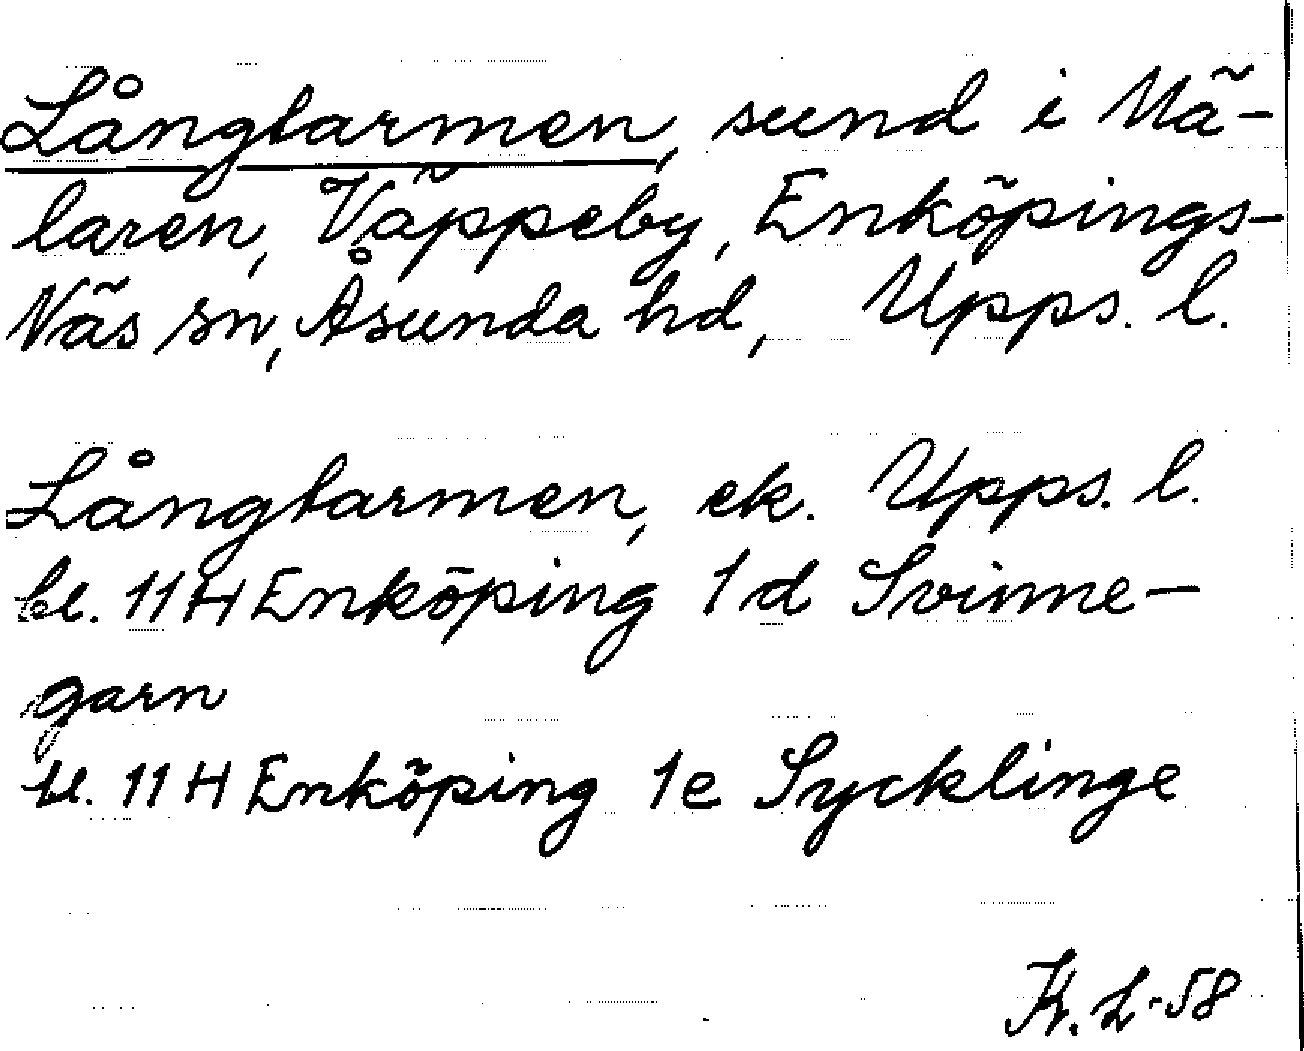 Långtarmen, sund i Mä-
laren, Väppeby, Enköpings-
Näs sn, Åsunda hd, Upps. l.
Långtarmen, ek. Upps. l.
bl. 11H Enköping 1d Svinne-
garn
bl. 11H Enköping 1e Sycklinge
L-58